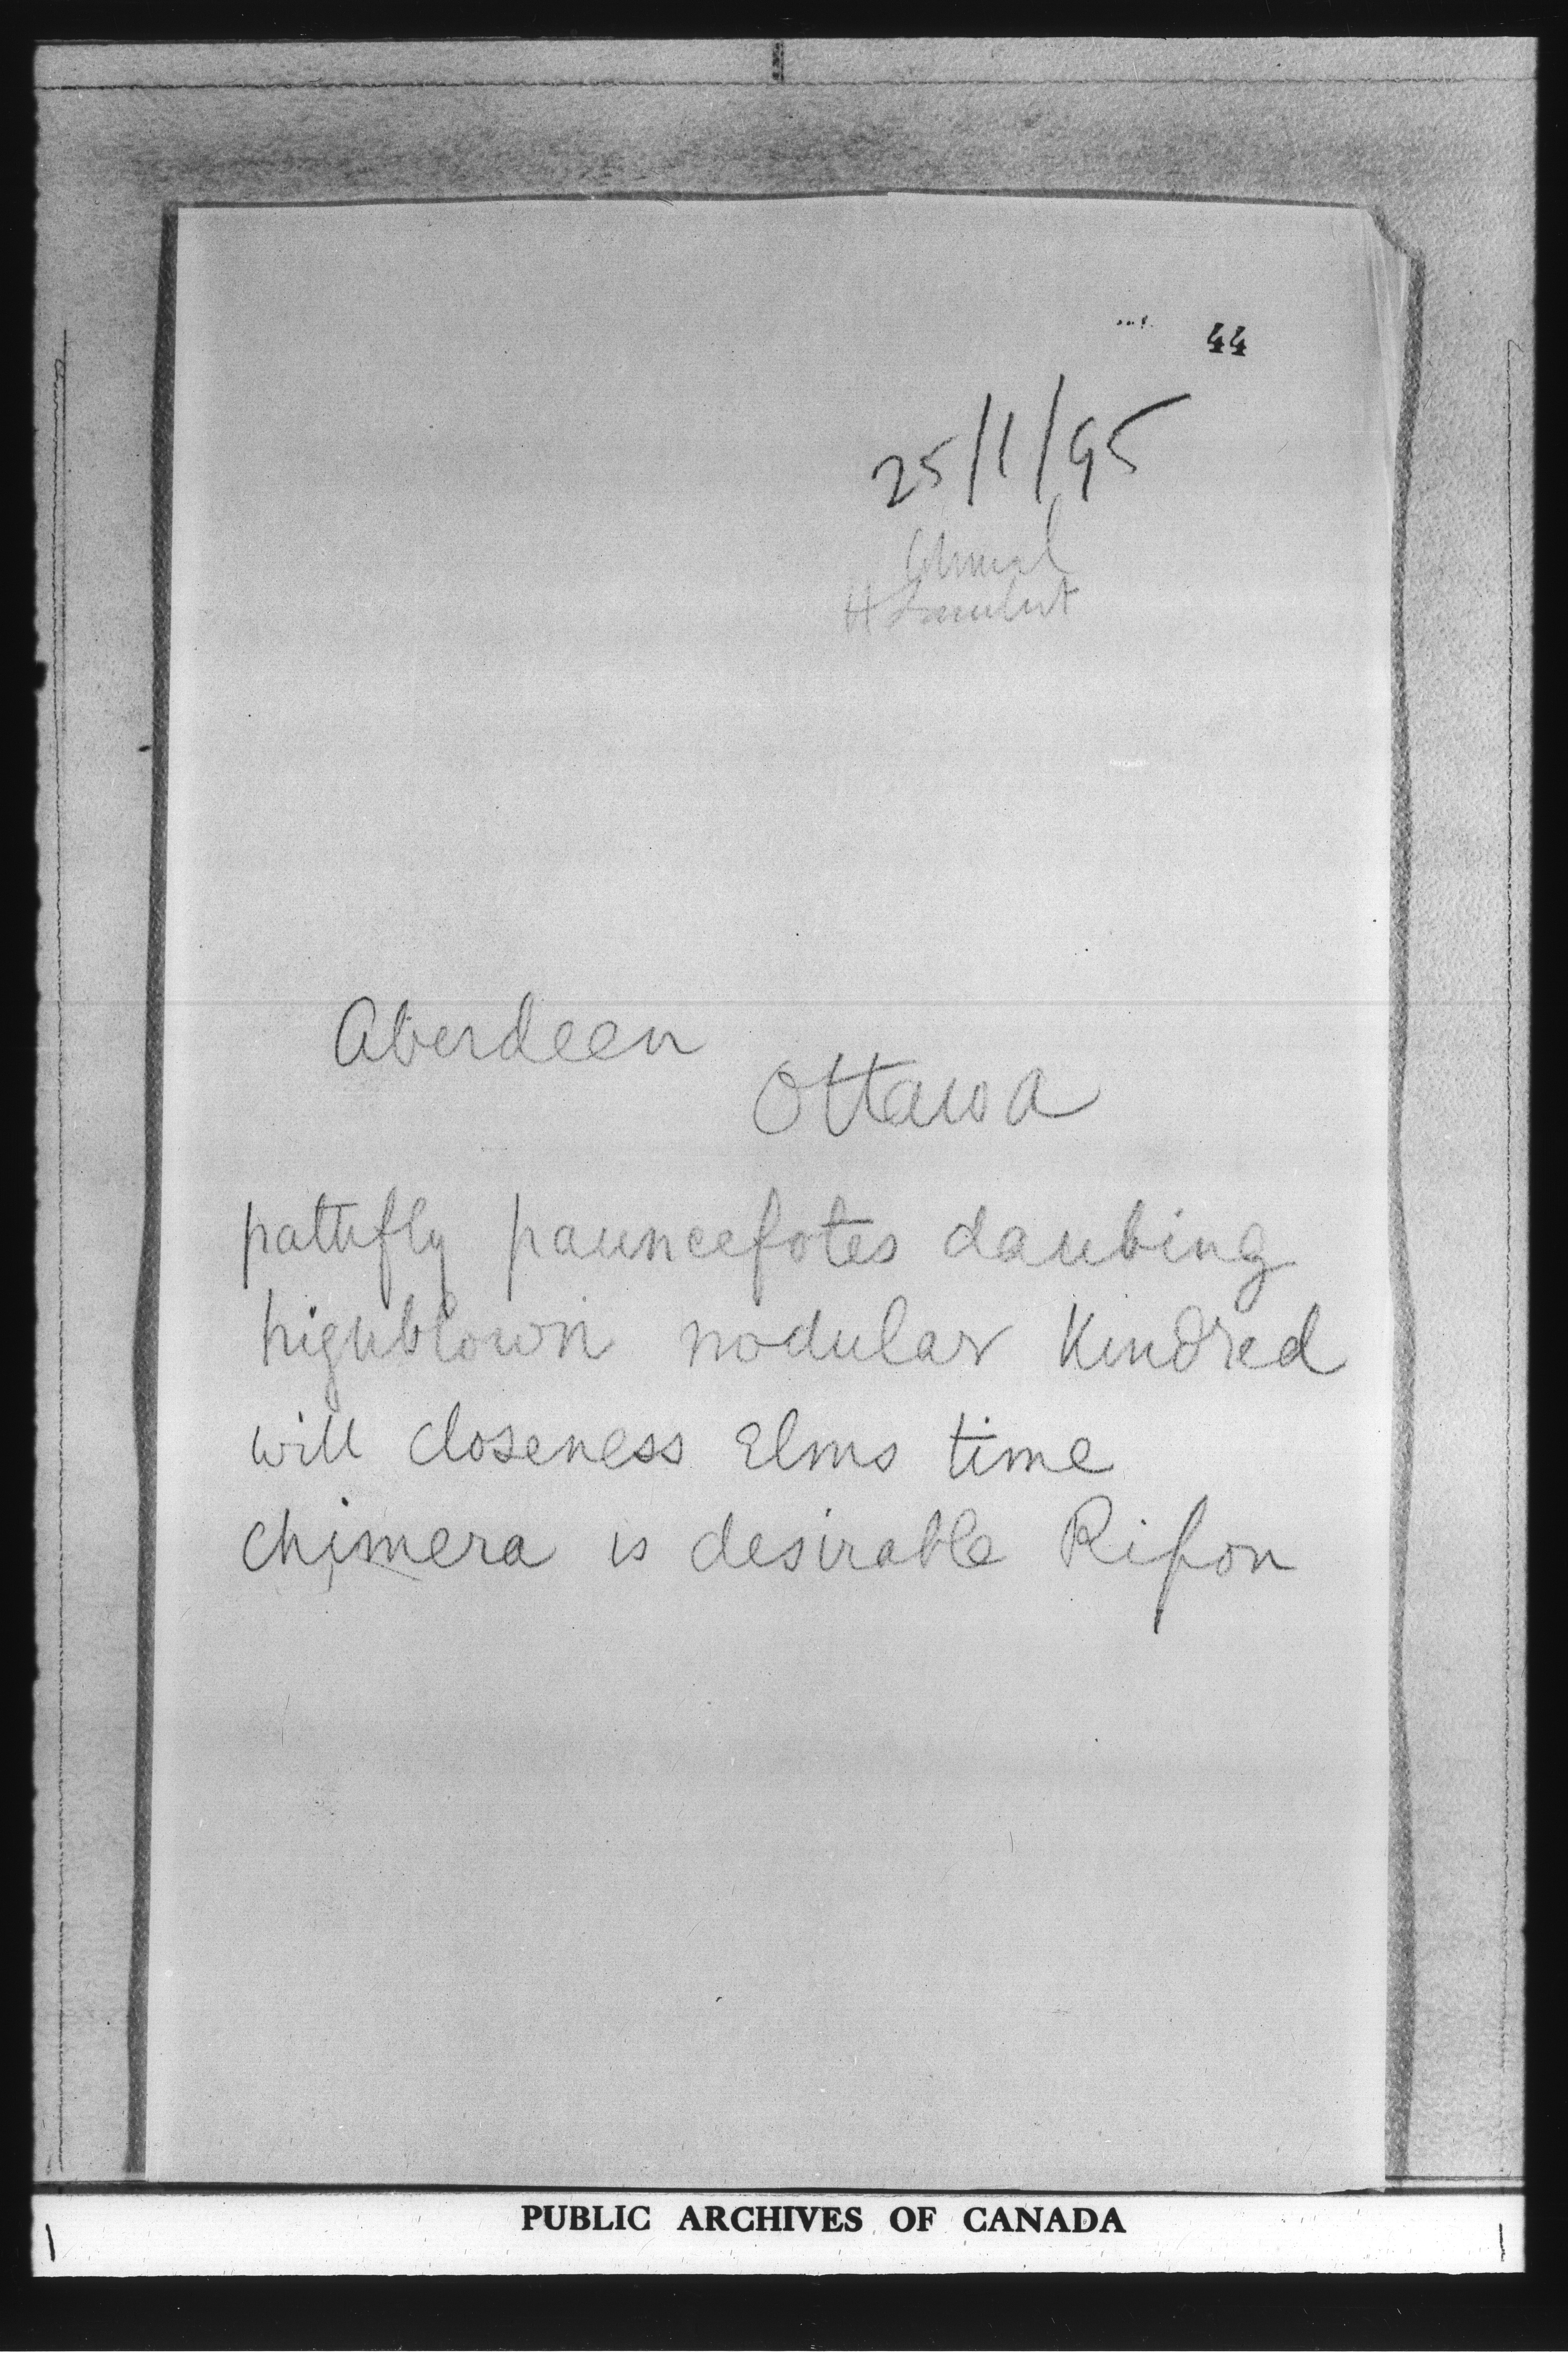 44
25/1/95
H Lambert
Aberdeen
Ottawa
pattifly pauncefotes daubing
highblown nodular Kindred
will closeness Elms time
chimera is desirable Ripon
PUBLIC ARCHIVES OF CANADA